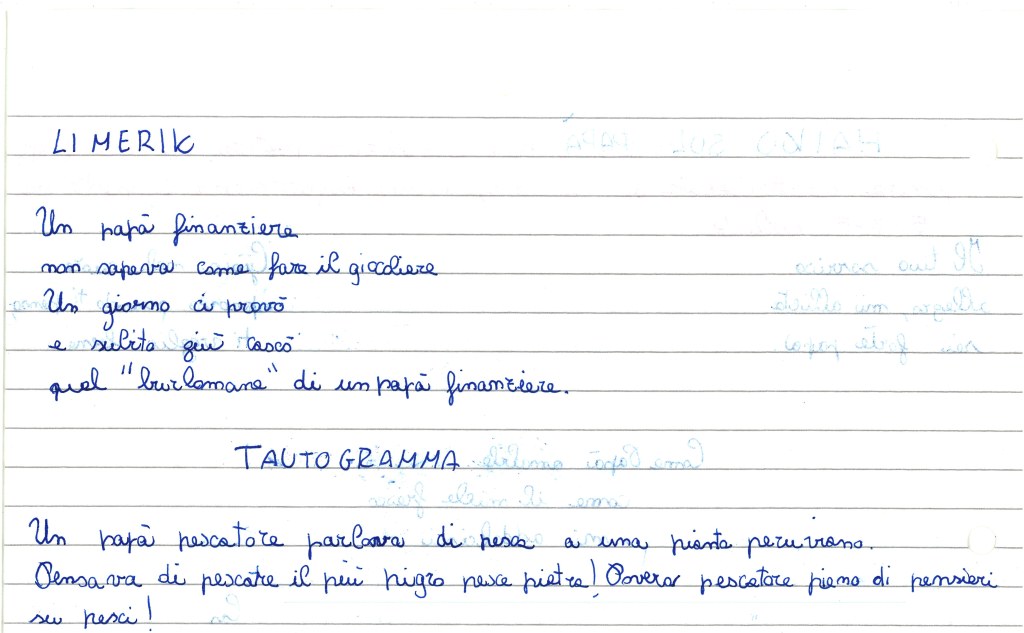 LIMERIK
Un papà finanziere
non sapeva come fare il giocoliere
Un giorno ci provò
e subito giù cascò
quel "burlomane" di un papà finanziere.
TAUTOGRAMMA
Un papà pescatore parlava di pesca a una pianta peruviana.
Pensava di pescare il più pigro pesce pietra! Povero pescatore pieno di pensieri
su pesci!